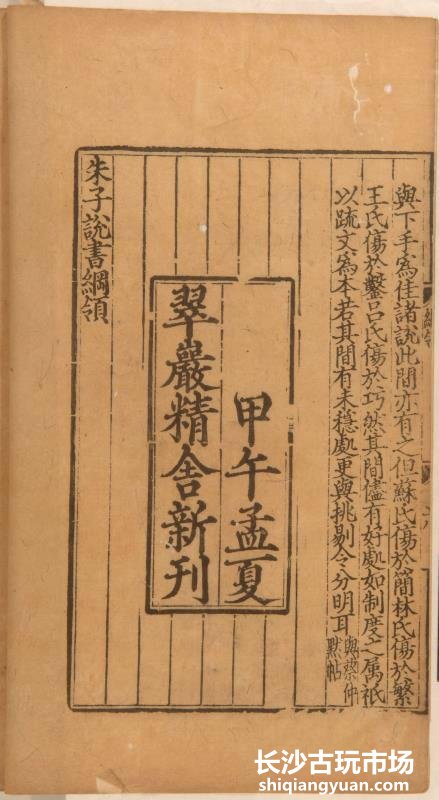 與下手爲佳諸說此間亦有之但蘇氏傷於簡林氏傷於繁
王氏傷於鑿吕氏傷於巧然其間儘有好處如制度之属衹
以疏文爲本若其間有未穩處更與挑剔令分明耳與蔡仲默帖
甲午孟夏
翠巖精舍新刊
朱子說書綱領
长沙古玩市场
shiqiangyuan.com